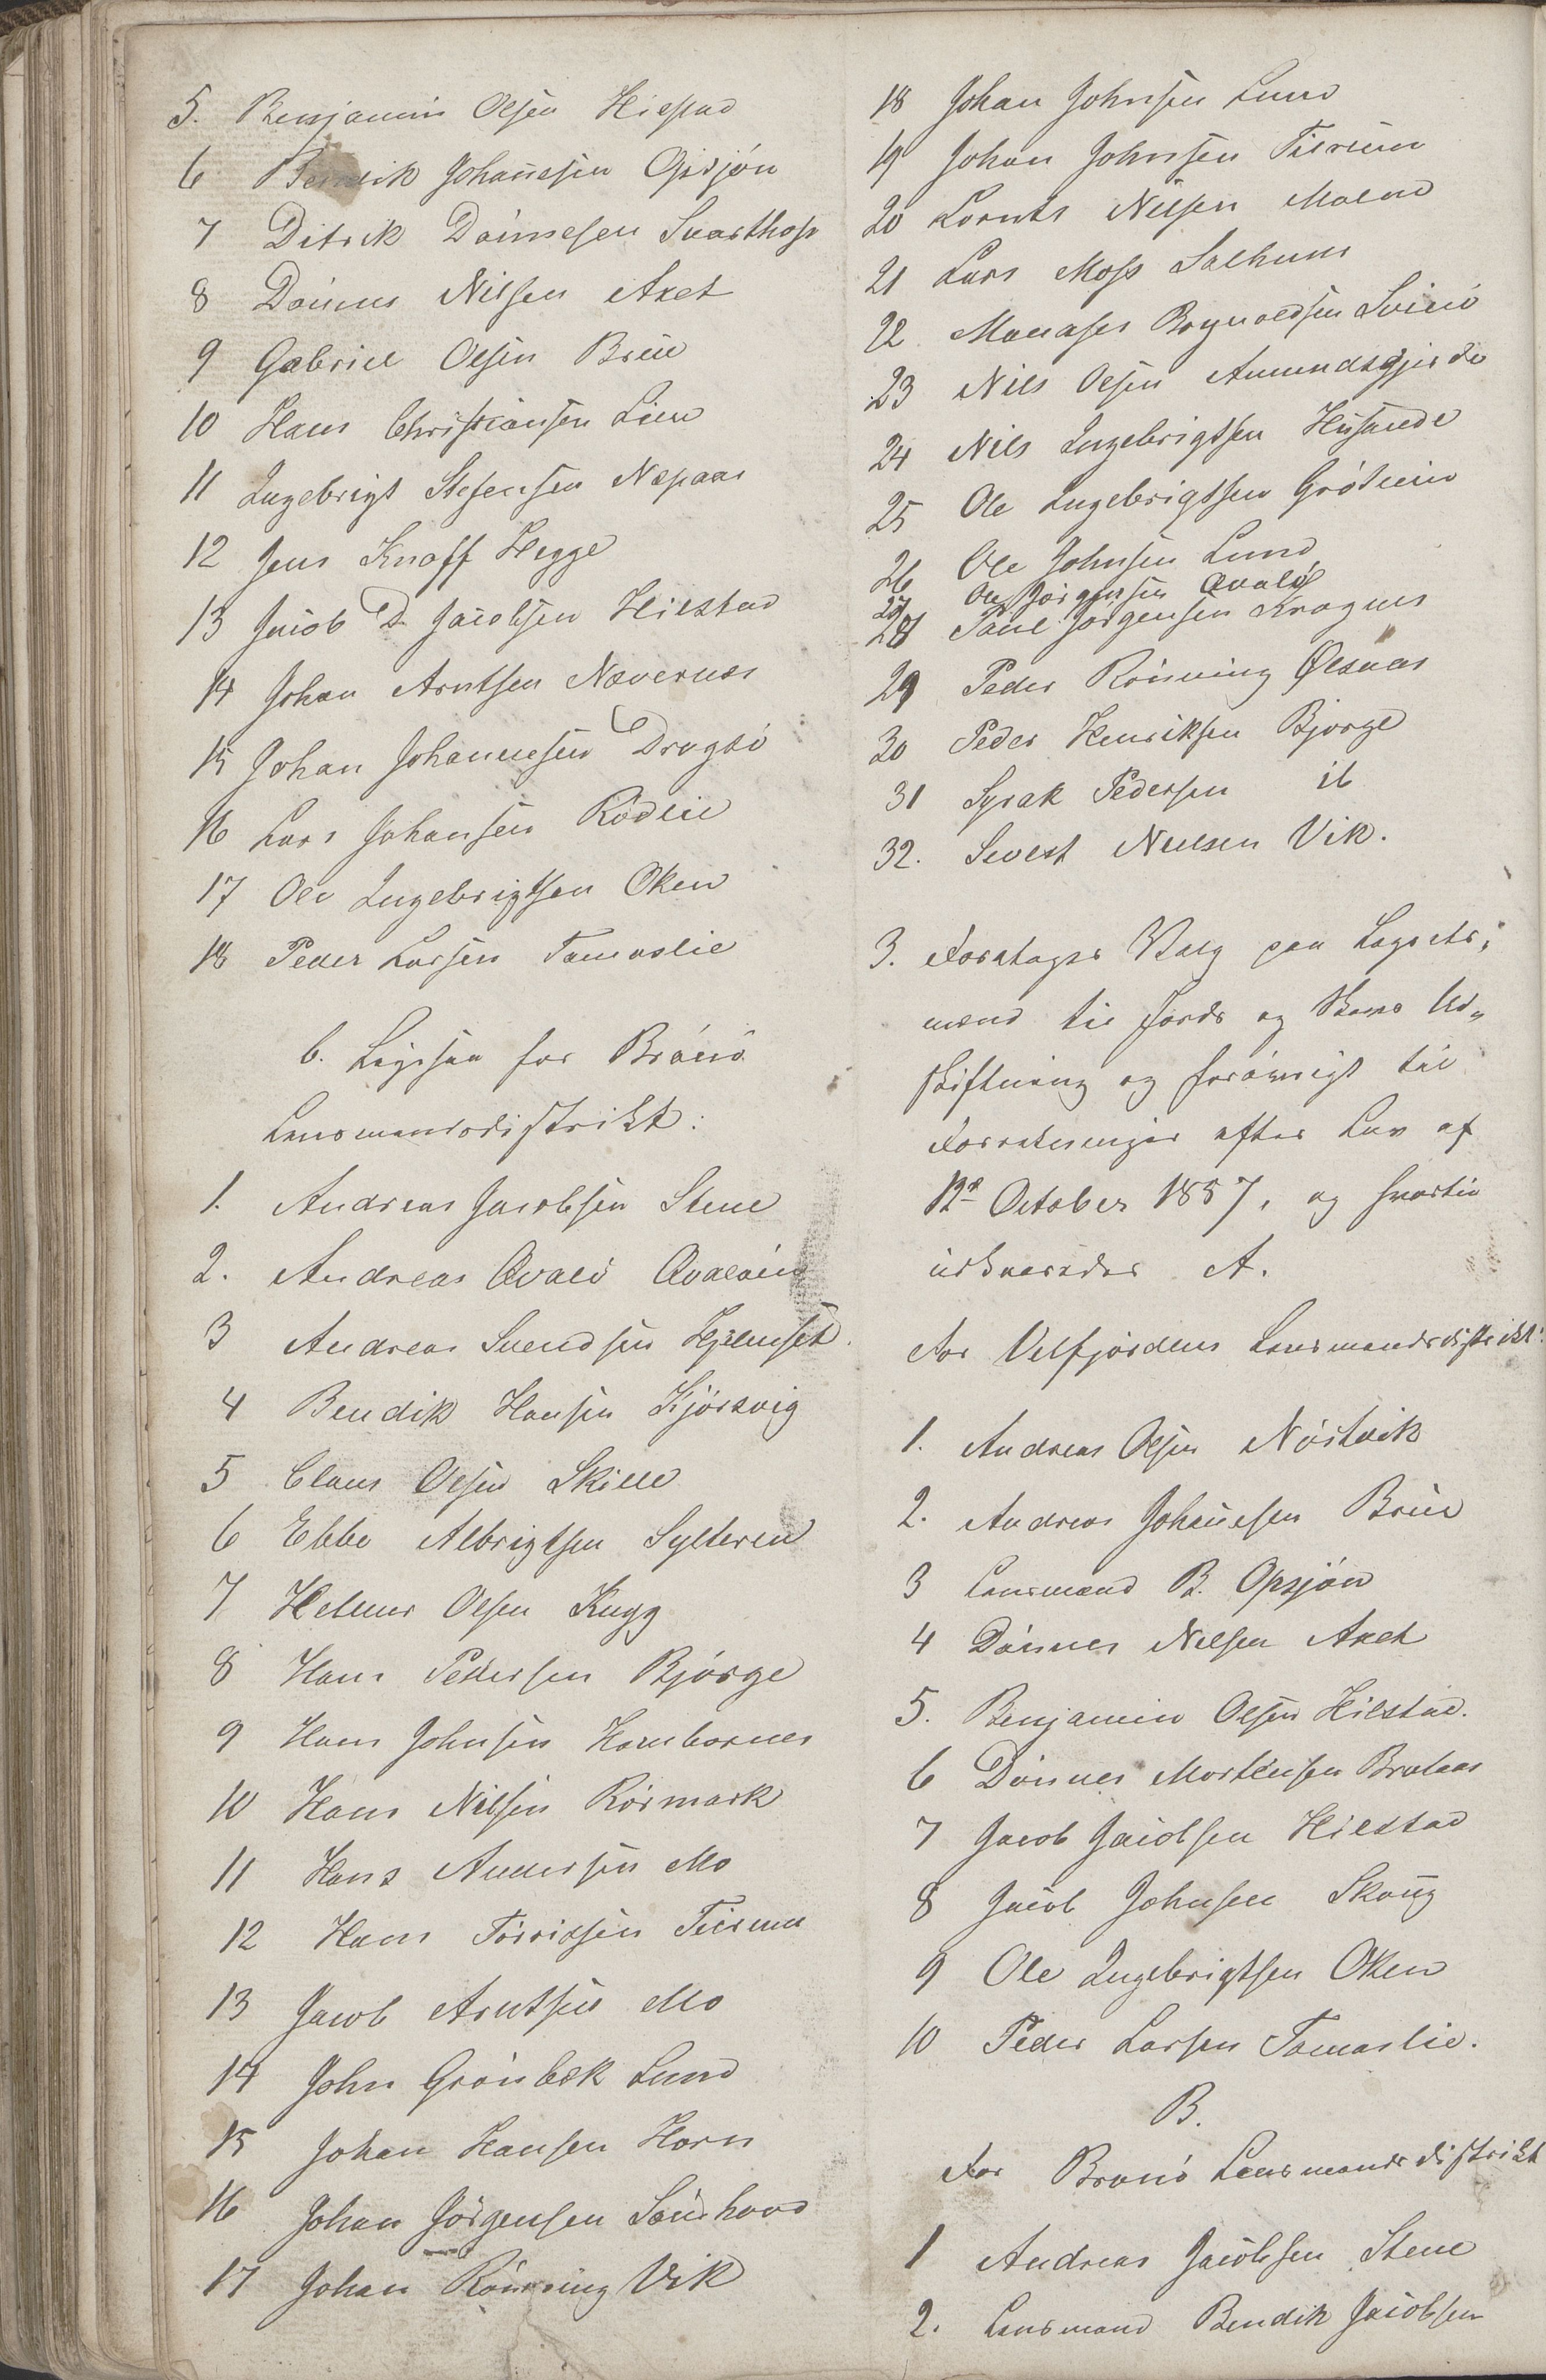 5. Benjamin Olsen Hilstad
6 Bendik Johannesen Opsjön
7 Ditrik Dönnesen Svarthop
8 Dönnes Nilsen Axet
9 Gabriel Olsen Brue
10 Hans Christiansen Lien
11 Ingebrigt Stefensen Næpaas
12 Jens Knoff Hegge
13 Jacob D. Jacobsen Hilstad
14 Johan Arntsen Nævernes
15 Johan Johannesen Dragsö
16 Lars Johansen Rödlie
17 Ole Ingebrigtsen Oken
18 Peder Larsen Tamaslie
b. Ligesaa for Brönö
Lensmandsdistrikt:
1. Andreas Jacobsen Stene
2. Andreas Qvalö Qvalöen
3 Andreas Svendsen Hjelmset
4 Bendik Hansen Kjörsvig
5 Claus Olsen Skille
6 Ebbe Albrigtsen Sylteren
7 Helmer Olsen Rugg
8 Hans Pedersen Bjørge
9 Hans Johnsen Hambornes
10 Hans Nilsen Rörmark
11 Hans Andersen Mo
12 Hans Torrissen Tilrum
13 Jacob Arntsen Mo
14 John Grönbek Lund
15 Johan Hansen Horn
16 Johan Jörgensen Sönshovd
17 Johan Rönning Vik
18 Johan Johnsen Lund
19 Johan Johnsen Tilrum
20 Lornts Nilsen Moland
21 Lars Moss Salhuus
22 Manases Bognoldsen Svinö
23 Nils Olsen Amundsgjerde
24 Nils Ingebrigtsen Hestnede
25 Ole Ingebrigtsen Grötheim
26 Ole Johnsen Lund
27 Ole Jörgensen Qvalö
28 Paul Jørgensen Kragnes
29 Peder Rönning Ølsnes
30 Peder Henriksen Bjorge
31 Syrak Pedersen ib
32. Sivert Neelsen Vik.
3. Foretages Valg paa Lagrets-
mænd til Jords og Skovs Ud-
skiftning og forøvrigt til
Forretninger efter Lov af
12te October 1857, og hertil
udkaaredes A.
For Velfjordens Lensmandsdistrikt:
1. Andreas Olsen Nöstvik
2. Andreas Johanesen Brue
3 Lensmand B. Opsjön
4 Dönnes Nelsen Axet
5. Benjamin Olsen Hilstad.
6 Dönnes Mortensen Brataas
7 Jacob Jacobsen Hilstad
8 Jacob Johnsen Skoug
9 Ole Ingebrigtsen Oken
10 Peder Larsen Tamaslie.
B.
For Brönö Lensmandsdistrikt
1 Andreas Jacobsen Stene
2. Lensmand Bendik Jacobsen